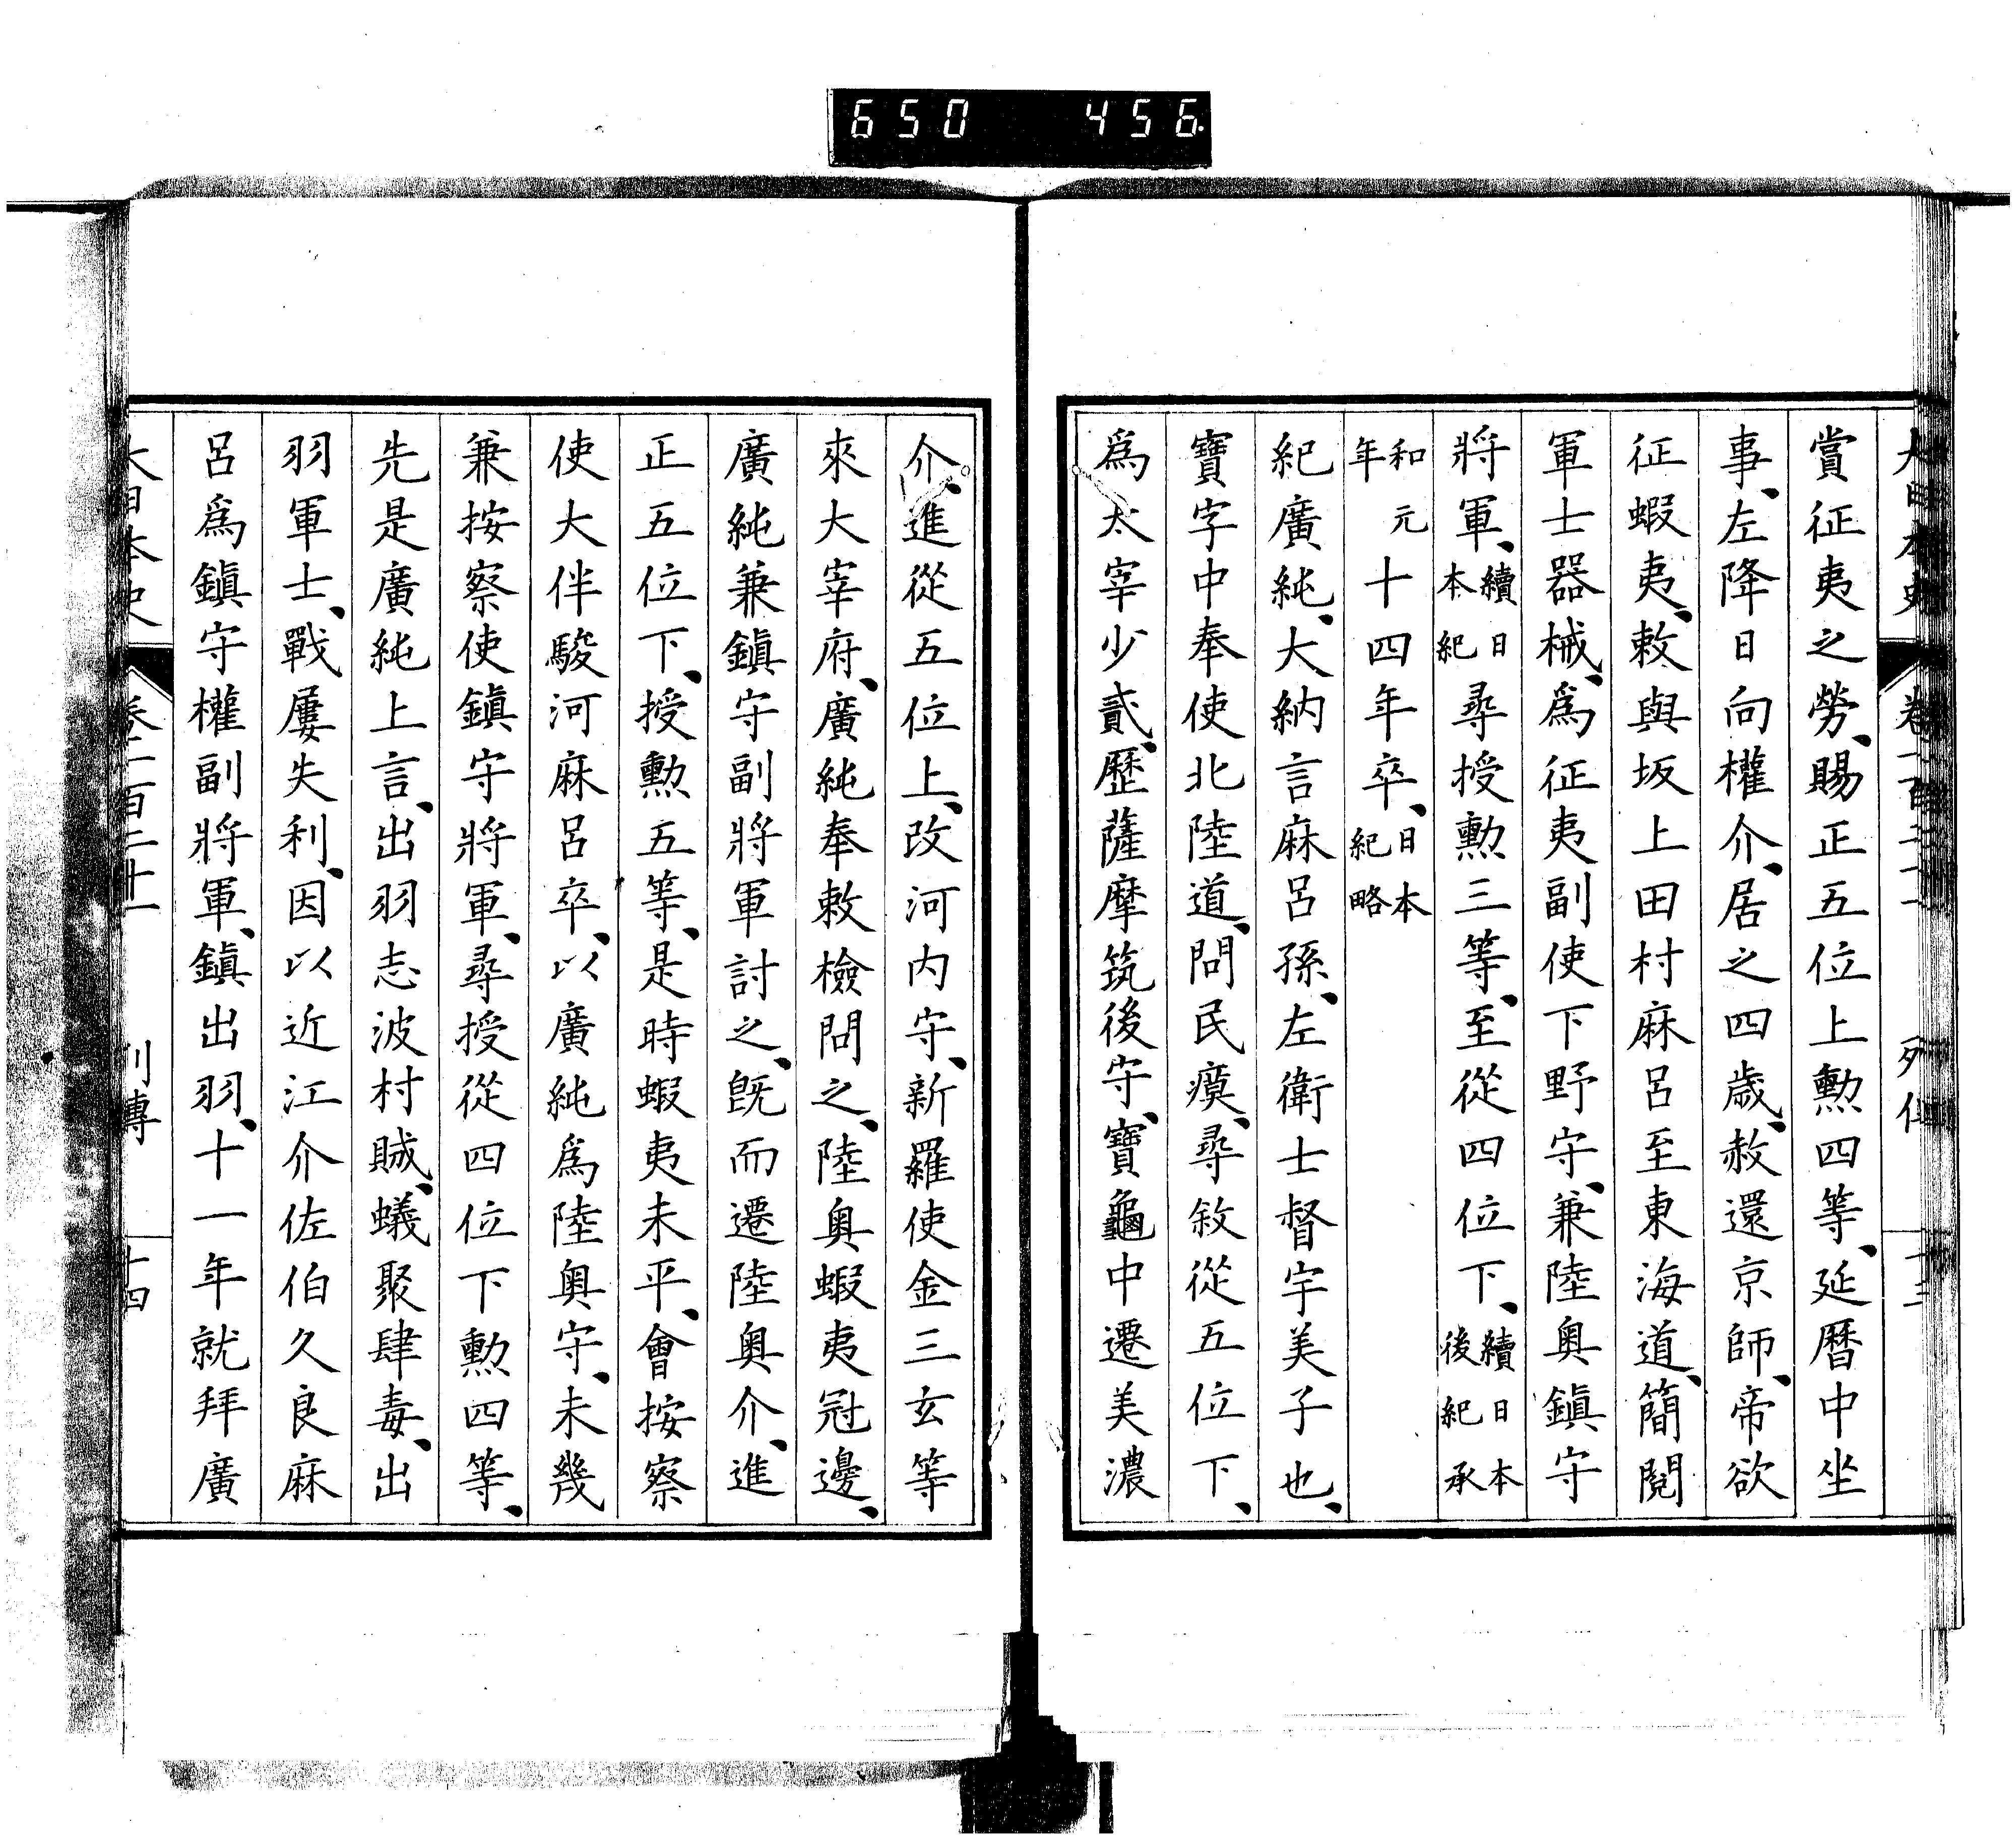 650 456
賞征夷之勞、賜正五位上勲四等、延暦中坐
事、左降日向權介、居之四歳、赦還京師、帝欲
征蝦夷、敕與坂上田村麻呂至東海道、簡閲
軍士器械、爲征夷副使下野守、兼陸奥鎭守
將軍、續日本紀尋授勲三等、至從四位下、續日本後紀承
和元年十四年卒、日本紀略
紀廣純、大納言麻呂孫、左衛士督宇美子也、
寶字中奉使北陸道、問民瘼、尋敘從五位下、
爲太宰少貳、歷薩摩筑後守、寶龜中遷美濃
介、進從五位上、改河内守、新羅使金三玄等
來大宰府、廣純奉敕檢問之、陸奥蝦夷冦邊、
廣純兼鎭守副將軍討之、既而遷陸奥介、進
正五位下、授勲五等、是時蝦夷未平、會按察
使大伴駿河麻呂卒、以廣純爲陸奥守、未幾
兼按察使鎭守將軍、尋授從四位下勲四等、
先是廣純上言、出羽志波村賊、蟻聚肆毒、出
羽軍士、戰屢失利、因以近江介佐伯久良麻
呂爲鎭守權副將軍、鎭出羽、十一年就拜廣
大日本史 卷一百二十一 列傳 十四